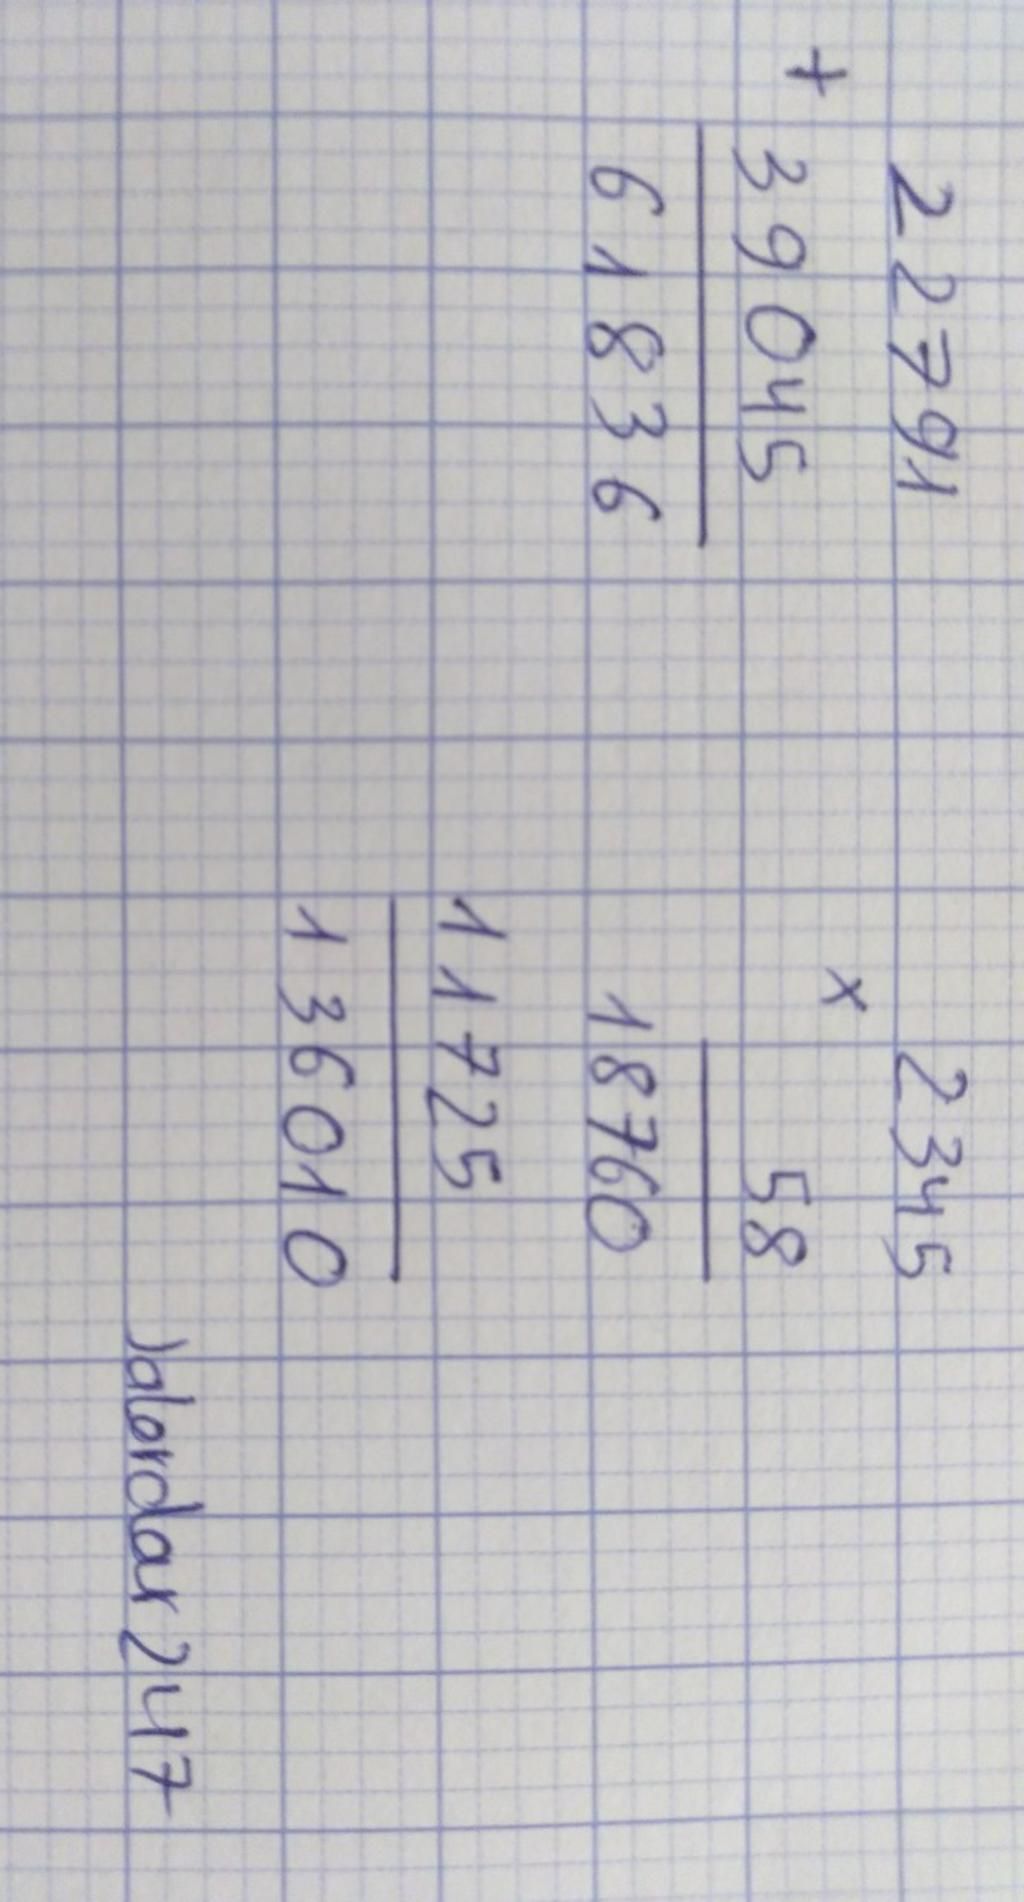 22791
+
39045
61836
2345
×
58
18760
11725
136010
Jalordar247